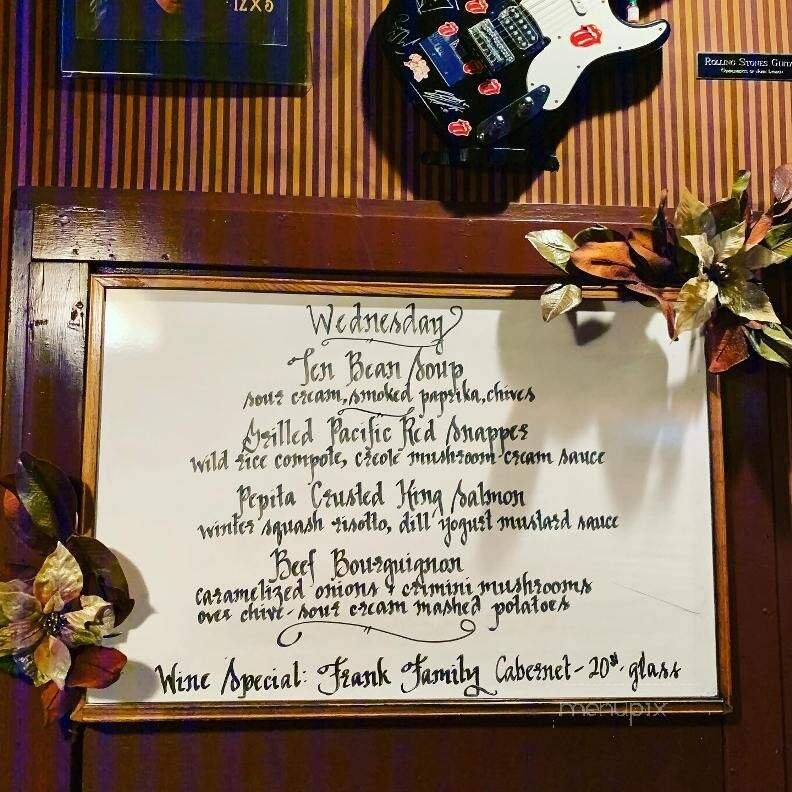 12x5
ROLLING STONES GUITA
Wednesday
Ten Bean Soup
sour cream, smoked paprika, chives
Grilled Pacific Red Snapper
wild rice compote, creole mushroom cream sauce
Pepita Crusted King Salmon
winter squash risotto, dill yogurt mustard sauce
Beef Bourguignon
caramelized onions + crimini mushrooms
over chive-sour cream mashed potatoes
Wine Special: Frank Family Cabernet - 20$ - glass
menupix